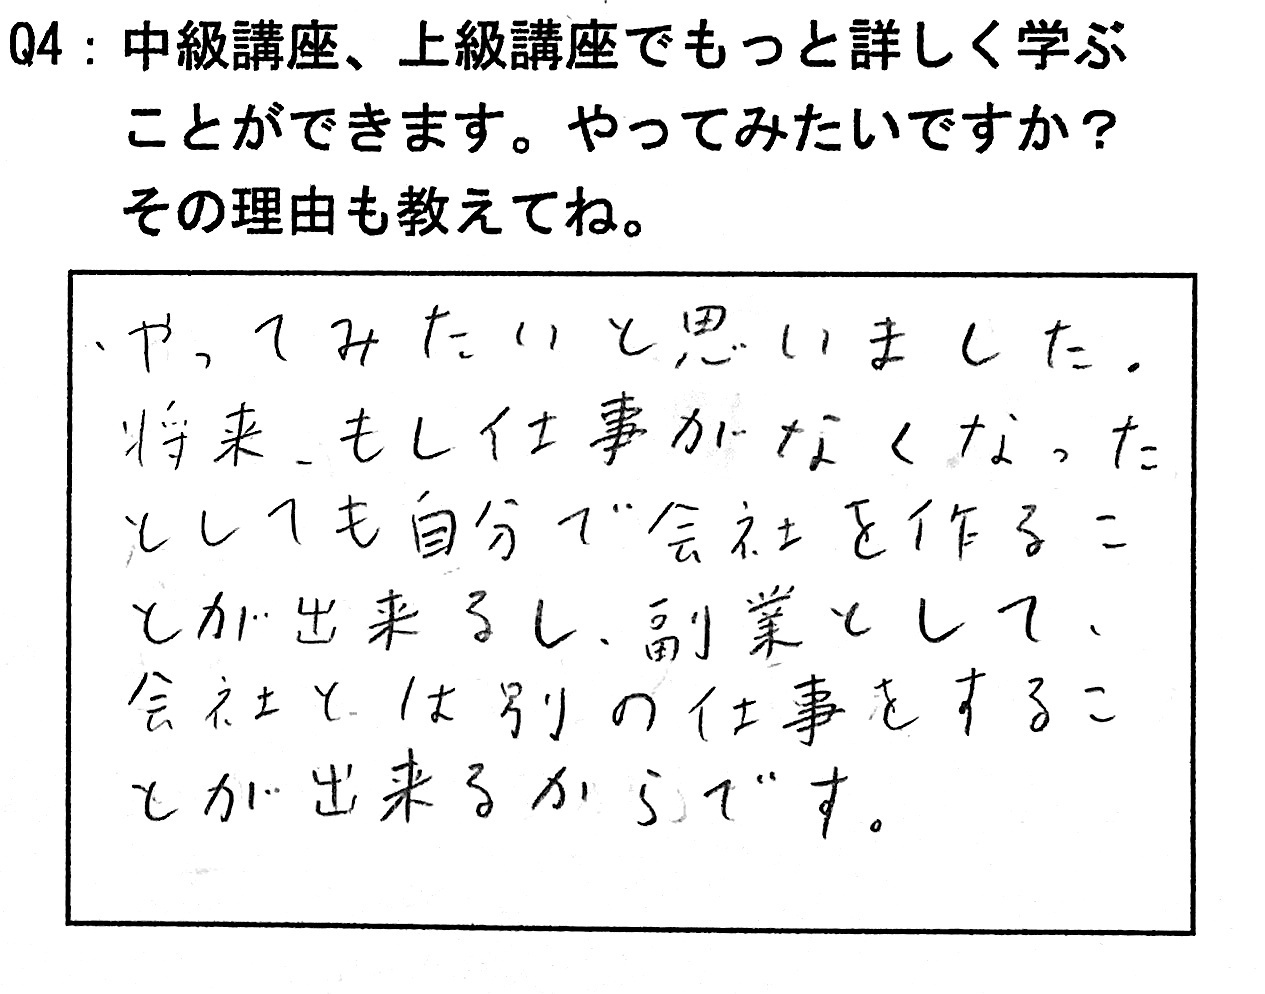 Q4：中級講座、上級講座でもっと詳しく学ぶ
ことができます。やってみたいですか？
その理由も教えてね。
・やってみたいと思いました.
将来、もし仕事がなくなった
としても自分で会社を作るこ
とが出来るし、副業として、
会社とは別の仕事をするこ
とが出来るからです。